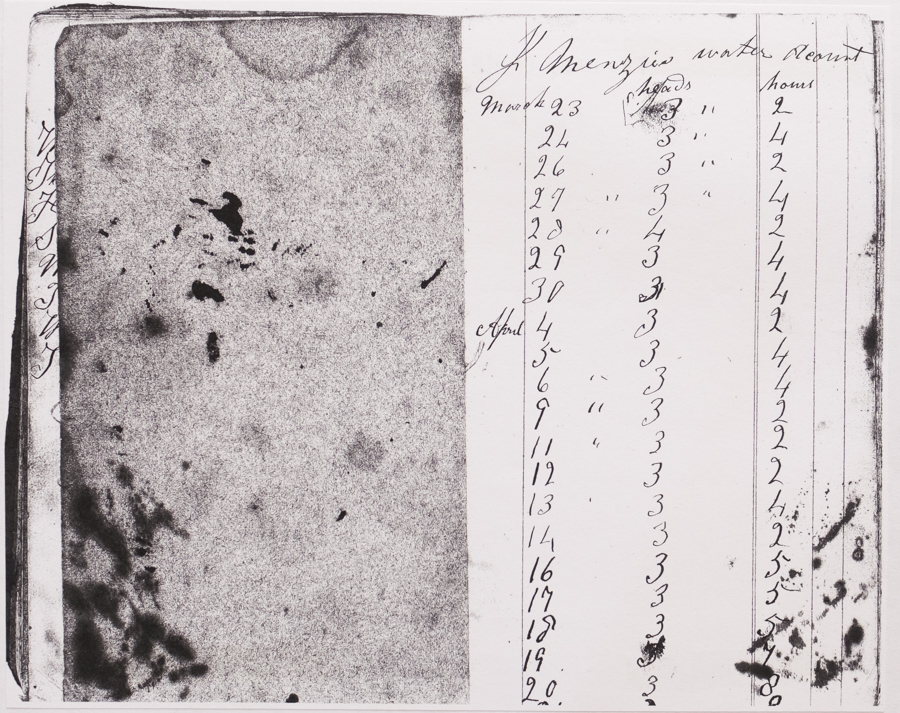 Menzies water Account
heads hours
March 23 3 " 2
24 3 " 4
26 3 " 2
27 " 3 " 4
28 " 4 2
29 3 4
30 3 4
April 4 3 2
5 3 4
6 " 3 4
9 " 3 2
11 " 3 2
12 3 2
13 ' 3 4
14 3 2
16 3 5
17 3 5
18 3 5
19 3 7
20 3 8